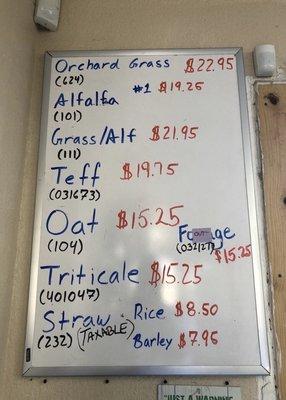 Orchard Grass $22.95
(624)
Alfalfa #1 $19.25
(101)
Grass/Alf $21.95
(111)
Teff $19.75
(031673)
Oat $15.25
(104)
$15.25
Triticale $15.25
(401047)
Straw Rice $8.50
(232) (TAXABLE) Barley $7.95
"JUST A WARNING